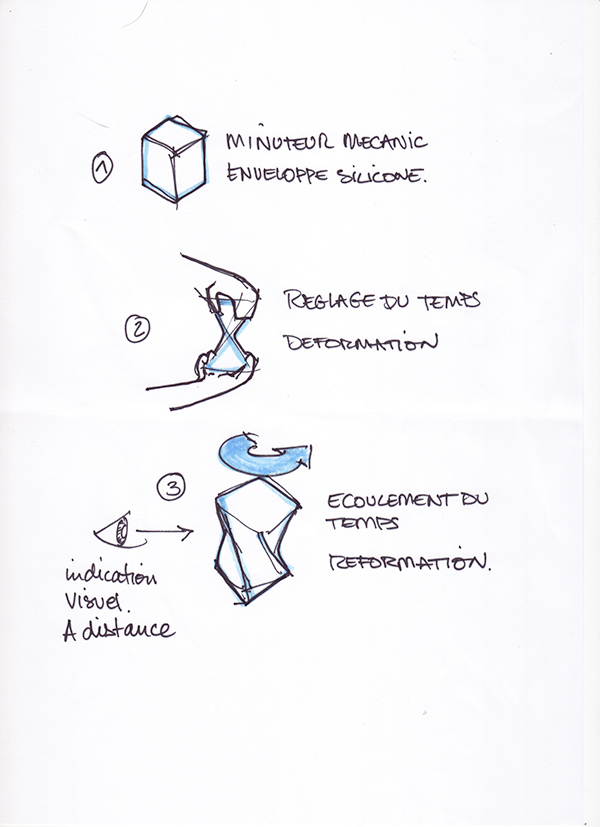 1
MINUTEUR MECANIC
ENVELOPPE SILICONE.
2
REGLAGE DU TEMPS
DEFORMATION
3
ECOULEMENT DU
TEMPS
REFORMATION.
indication
Visuel.
A distance